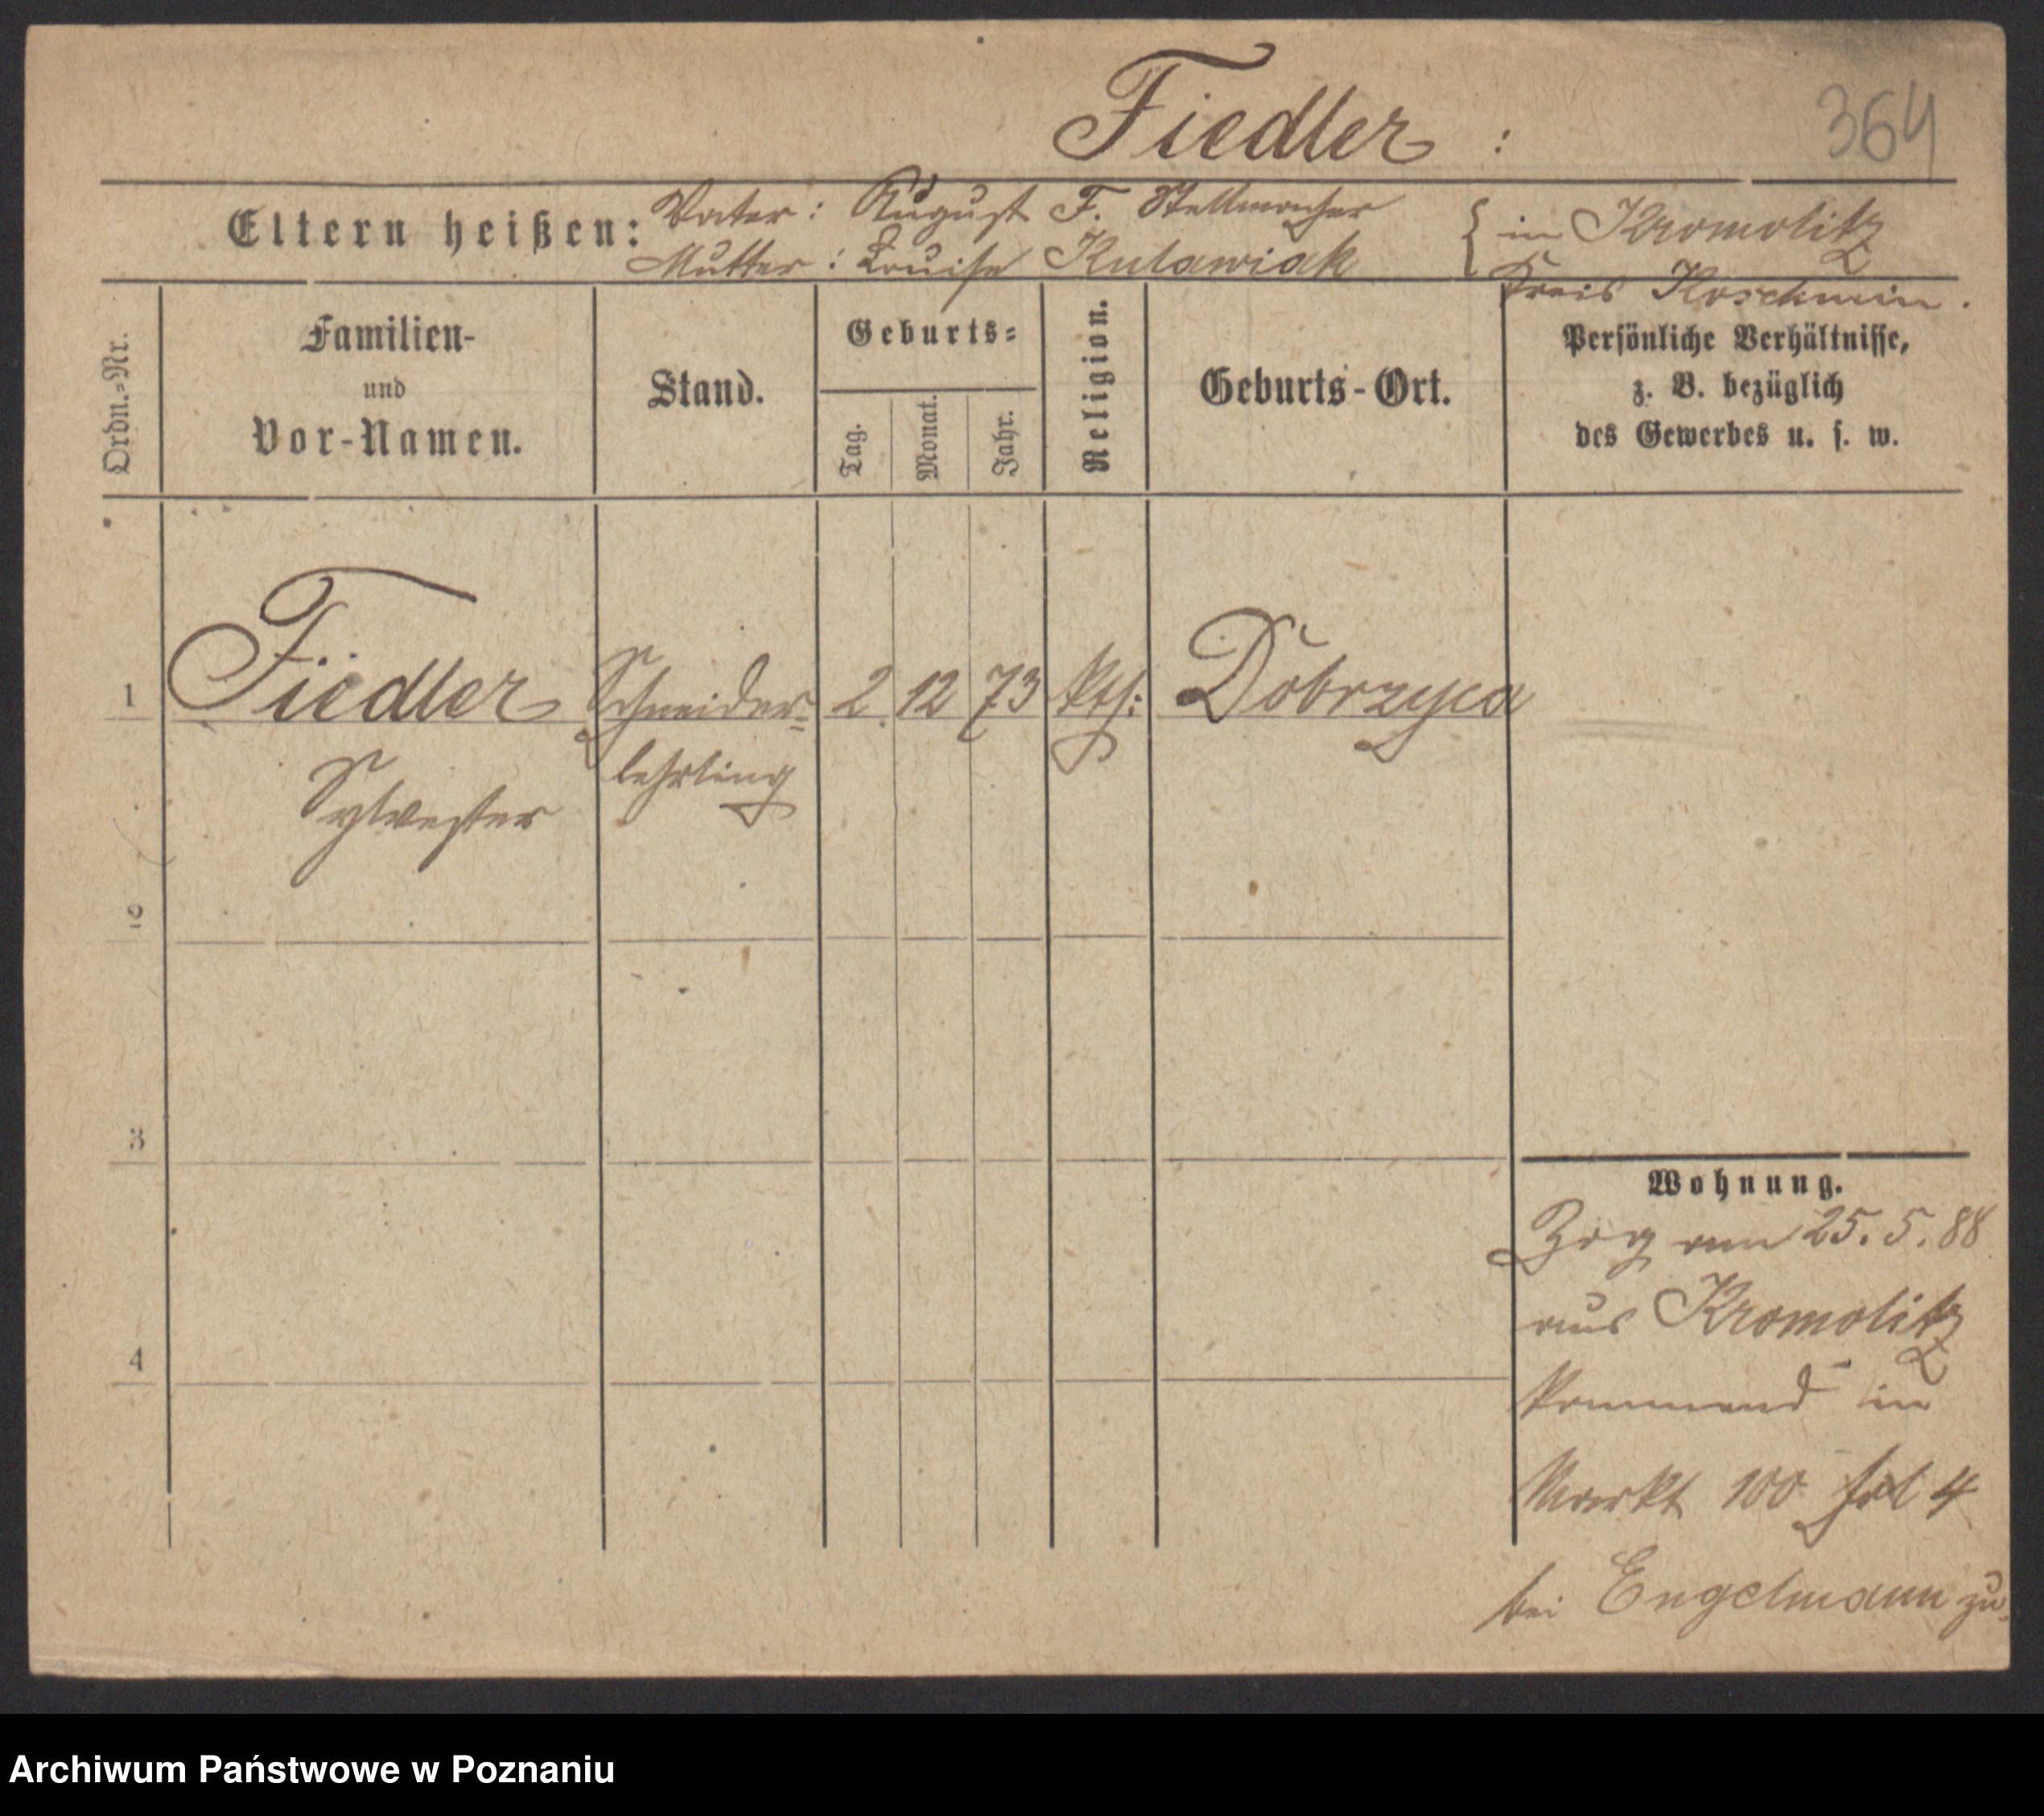 Fiedler :
364
Eltern heißen:
Vater : August F. Stellmacher
Mutter : Louise Kulawiak
{ in Kromolitz
Kreis Koschmin.
Ordn.-Nr.
Familien-
und
Vor-Namen.
Stand.
Geburts-
Tag.
Monat.
Jahr.
Religion.
Geburts-Ort.
Persönliche Verhältnisse,
z. B. bezüglich
des Gewerbes u. s. w.
1 Fiedler Schneider- 2. 12 73 kth: Dobrzyca
Sylvester lehrling
2
3
4
Wohnung.
Zog am 25. 5. 88
aus Kromolitz
kommend in
Markt 100
4
bei Engelmann zu.
Archiwum Państwowe w Poznaniu